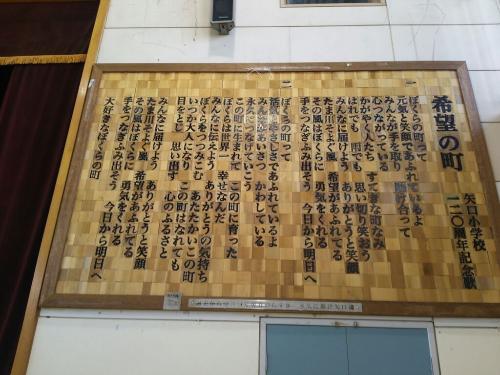 希望の町
矢口小学校
一二〇周年記念歌
一
ぼくらの町って
元気と笑顔であふれているよ
みんなが手を取り 助け合って
心つながっている
かがやく人たち すてきな町なみ
はれでも 雨でも 思い切り笑おう
みんなに届けよう ありがとうと笑顔
たま川そよぐ風 希望があふれてる
その風はぼくらに 勇気をくれる
手をつなぎふみ出そう 今日から明日へ
二
ぼくらの町って
活気とやさしさであふれているよ
みんながあいさつ かわしている
永久につなげていこう
この町に生まれて この町に育った
ぼくらは世界一 幸せなんだ
みんなに伝えよう ありがとうの気持ち
ぼくらをつつみこむ あたたかいこの町
いつか大人になり この町はなれても
目をとじ 思い出す 心のふるさと
みんなに届けよう ありがとうと笑顔
たま川そよぐ風 希望があふれてる
その風はぼくらに 勇気をくれる
手をつなぎふみ出そう 今日から明日へ
大好きなぼくらの町